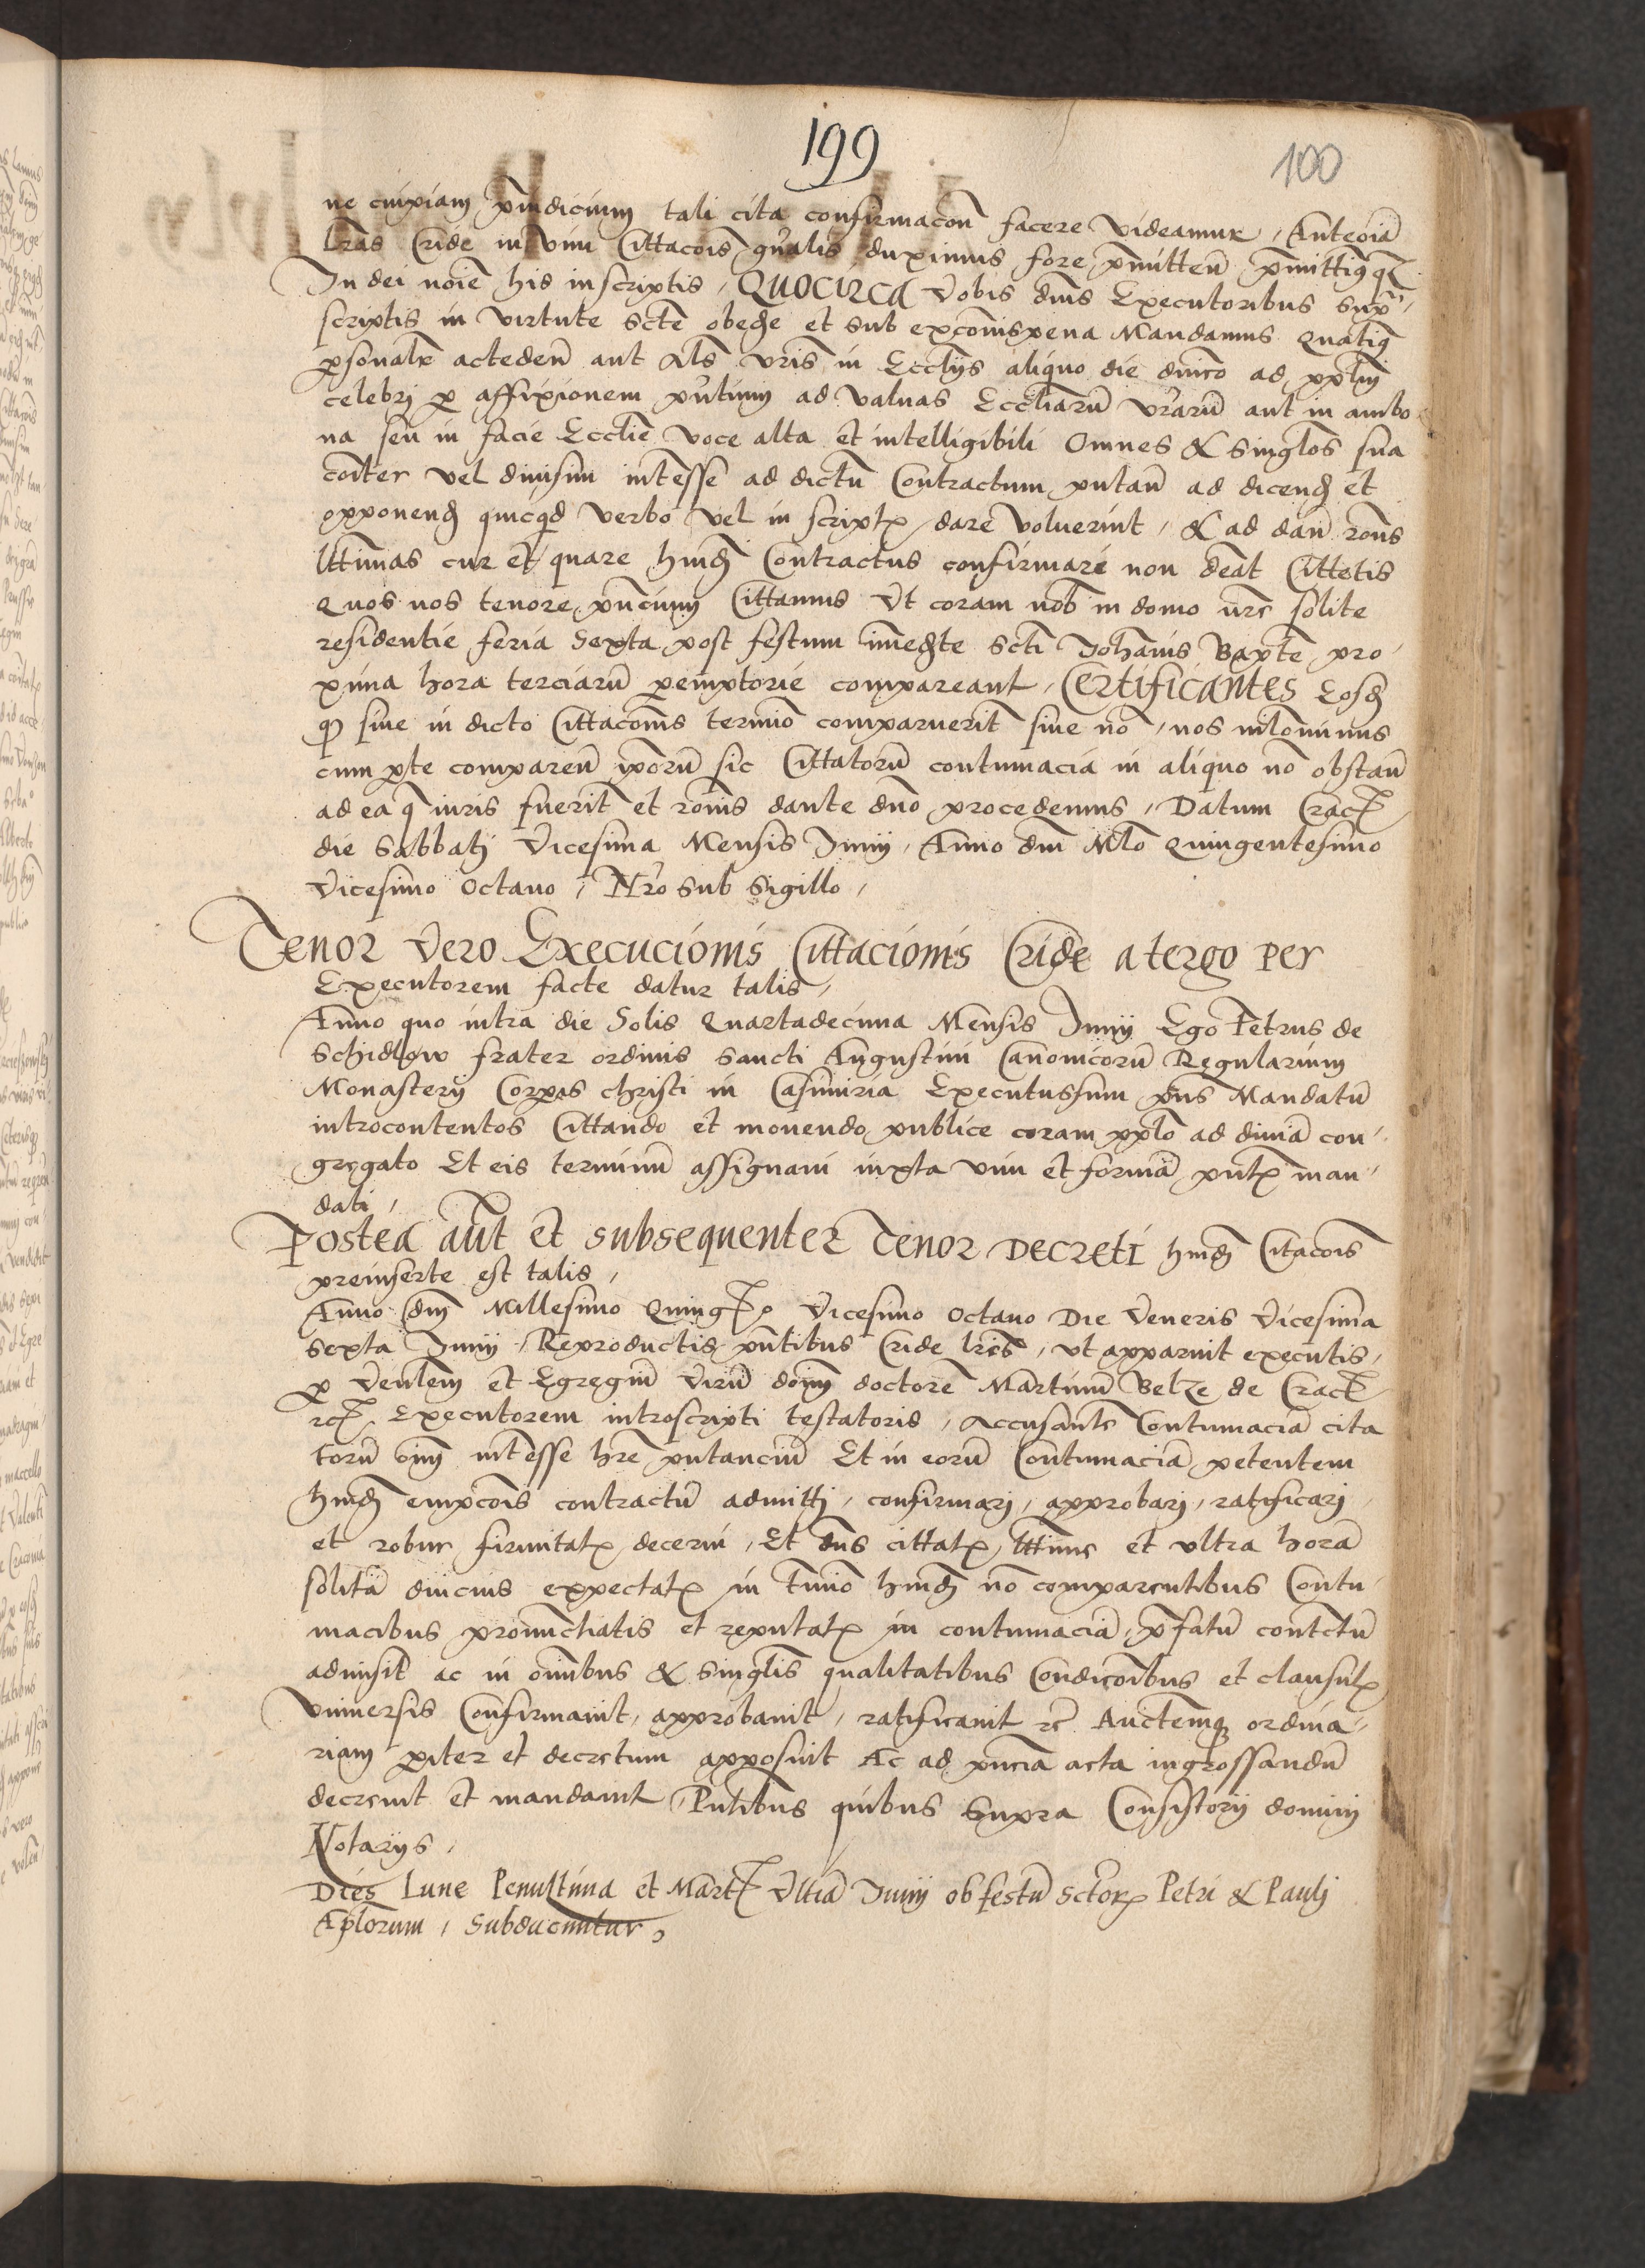 199
100
ne cuipiam p̄iudicium tali cita confirmacōn facere videamur, Anteōia
lr̄as Cride in vim Cittacōis gn̄alis duximus fore p̄mitten̄ p̄mittimꝰqꝫ
In dei noīe his inscriptis, QUOCIRCA vobis dn̄is Executoribus supra
scriptis in virtute scte obedīe et sub excōīs pena Mandamus quatinꝰ
ꝑsonalr̄ acceden̄ aut al̄s vr̄is in Ecclījs aliquo die dnīco ad pplm̄
celebrj ꝑ affixionem pn̄tium ad valuas Eccliarū vr̄arū aut in ambo
na seu in facie Ecclīe voce alta et intelligibili Omnes & singlōs sua
cōīter vel diuisim intēsse ad dictū Contractum putan̄ ad dicend̄ et
opponend̄ quicqd̄ verbo vel in scriptꝭ dare voluerint, & ad dan̄ rōn̄s
lttimas cur et quare hmōi Contractus confirmari non dēat Cittetis
Quos nos tenore pn̄cium Cittamus Vt coram nob̄ in domo nr̄e solite
residentie feria Sexta post festum im̄edīte Scti Johānis Bapte pro
xima hora terciarū ꝑemptorie compareant, Certificantes Eosd̄
qꝫ siue in dicto Cittacōnis termīo comparuerit siue nō, nos nīlomīnus
cum ꝑte comparen̄ ip̄orū sic Cittatorū contumacia in aliquo nō obstan̄
ad ea q̄ iuris fuerit et rōnis dante dn̄o procedemus, Datum Crac̄
die Sabbatj Vicesima Mensis Junij, Anno dn̄i Mlō Quingentesimo
Vicesimo Octauo, Nr̄o sub Sigillo,
Tenor Vero Execucionis Cittacionis Cride a tergo per
Executorem facte datur talis,
Anno quo intra die Solis Quartadecima Mensis Junij Ego Petrus de
Schidlow frater ordinis sancti Augustini Canonicorū Regularium
Monasterij Corpis christi in Casimiria Executussum pn̄s Mandatū
introcontentos Cittando et monendo publice coram pplo ad diuīa con
gregato Et eis terminū assignaui iuxta vim et formā pn̄tꝭ man
dati,
Postea aut̄ et subsequenter Tenor Decreti hmōi Citacōis
preinserte est talis,
Anno dn̄i Millesimo Quinḡꝭ Vicesimo Octauo Die Veneris Vicesima
Sexta Junij, Reproductis pn̄tibus Cride lrīs, vt apparuit executis,
ꝑ Ven̄lem et Egregiū Virū dn̄m doctorē Martinū Belze de Crac̄
rc̄ Executorem introscripti testatoris, Accusante Contumaciā cita
torū oīm intēsse hr̄e putanciū Et in eorū Contumaciā petentem
hmōi empcōis contractū admitti, confirmarj, approbarj, ratificarj
et robur firmitatꝭ decerni, Et dn̄s cittatꝭ lttime et vltra horā
solitā diucius expectatꝭ in tmīo hmōi nō comparentibus Contu
macibus pronūctiatis et reputatꝭ in contumaciā, p̄fatū contctū
admisit ac in oīnibus & singlīs qualitatibus Condicōibus et clausulꝭ
vniuersis Confirmauit, approbauit, ratificauit rc̄ Auctemqꝫ ordina
riam ꝑiter et decretum apposuit Ac ad pn̄cia acta ingrossandū
decreuit et mandauit, Pn̄tibus quibus Supra Consistorij dominj
Notarijs,
Dies Lune Penultima et Mart̄ Vltiā Junij ob festū Sctorꝝ Petri & Paulj
Aplōrum, Subducuntur,